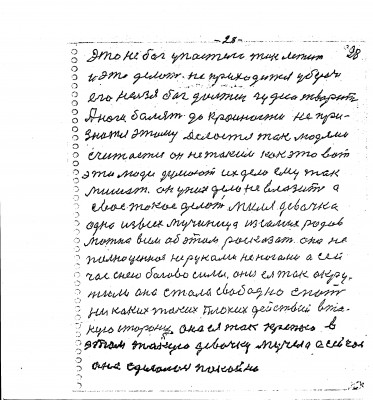 - 28 -
28
Это не бог упостень так летит
и это делат. не приходится убрат
его нелзя бог должен чудеса творить
А ноги болят до крайности не при-
знатя этому делается так людями
считается он не таким как это вот
эти люди думают их дело ему так
мишат. он у них дело не влазить а
свое токое делат милая девочка
одна из всех мучиница из самих родов
можна вим об этом росказат. она не
полноцоная не руками не ногами а сей
час снею богово сила, они ея так окру-
тили она стала свабодно спат
ни каких таких плохих действий в та-
кую сторону она ея так крепко в
этом такую девочку мучела а сейчас
она сделалас покойно